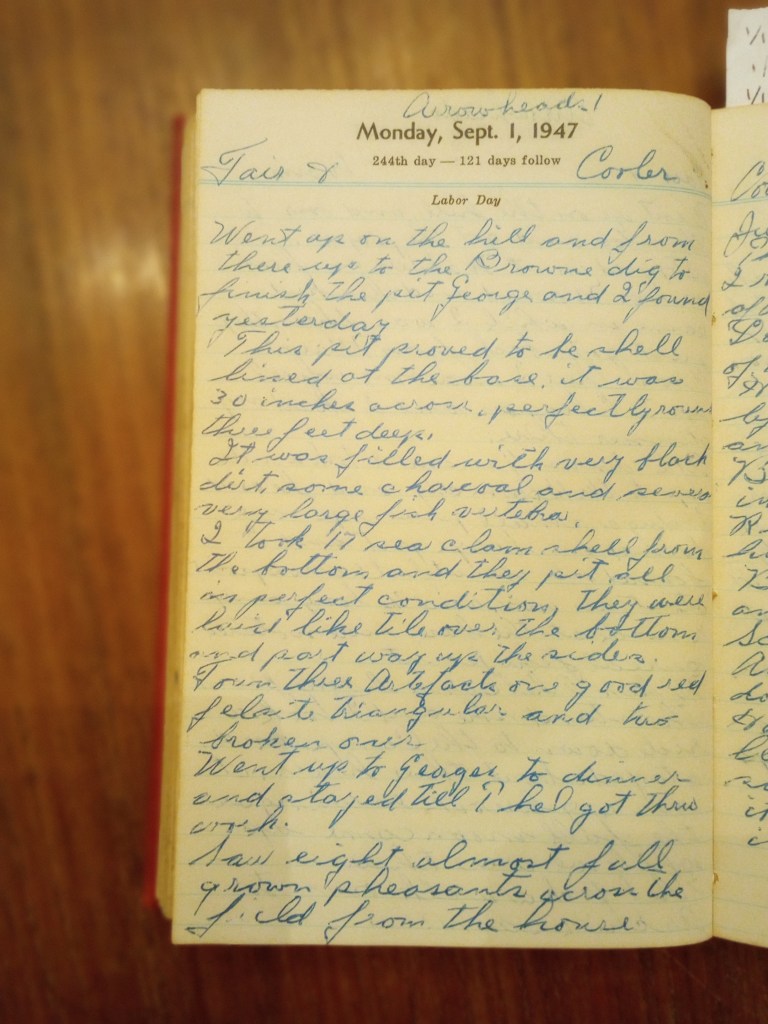 Arrowheads!
Monday, Sept. 1, 1947
244th day — 121 days follow
Fair & Cooler
Labor Day
Went up on the hill and from
there up to the Browne dig to
finish the pit George and I found
yesterday
This pit proved to be shell
lined at the base. it was
30 inches across, perfectly roun
three feet deep.
It was filled with very black
dirt, some charcoal and sever
very large fish vertebra.
I took 17 sea clam shell from
the bottom and they pit all
in perfect condition, they were
laid like tile over the bottom
and part way up the sides.
Foun three Artefacts one good red
felsite triangular and two
broken ones
Went up to Georges to dinner
and stayed till Thel got thru
work.
Saw eight almost full
grown pheasants across the
field from the house